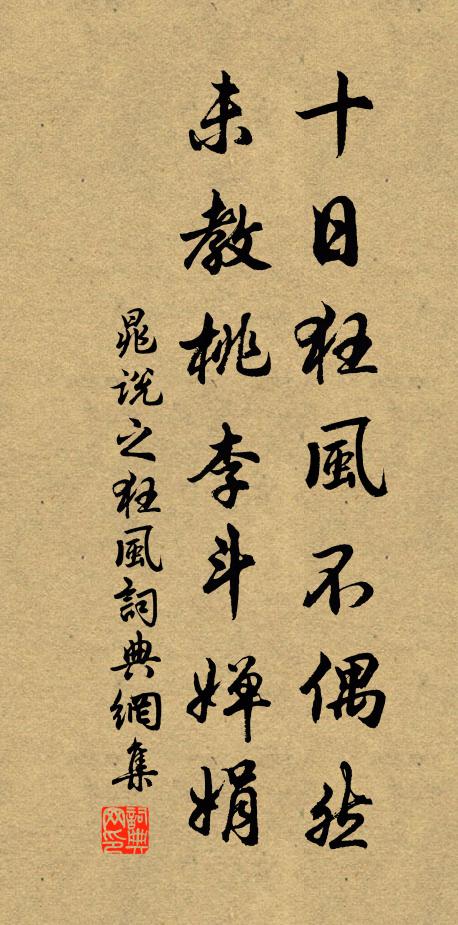 十日狂風不偶然
未教桃李斗嬋娟
晁說之狂風詞典網集
詞典网印